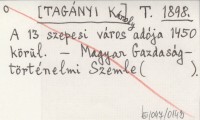 [TAGÁNYI Károly] T. 1898.
A 13 szepesi város adója 1450
körül. – Magyar Gazdaság-
történelmi Szemle (      ).